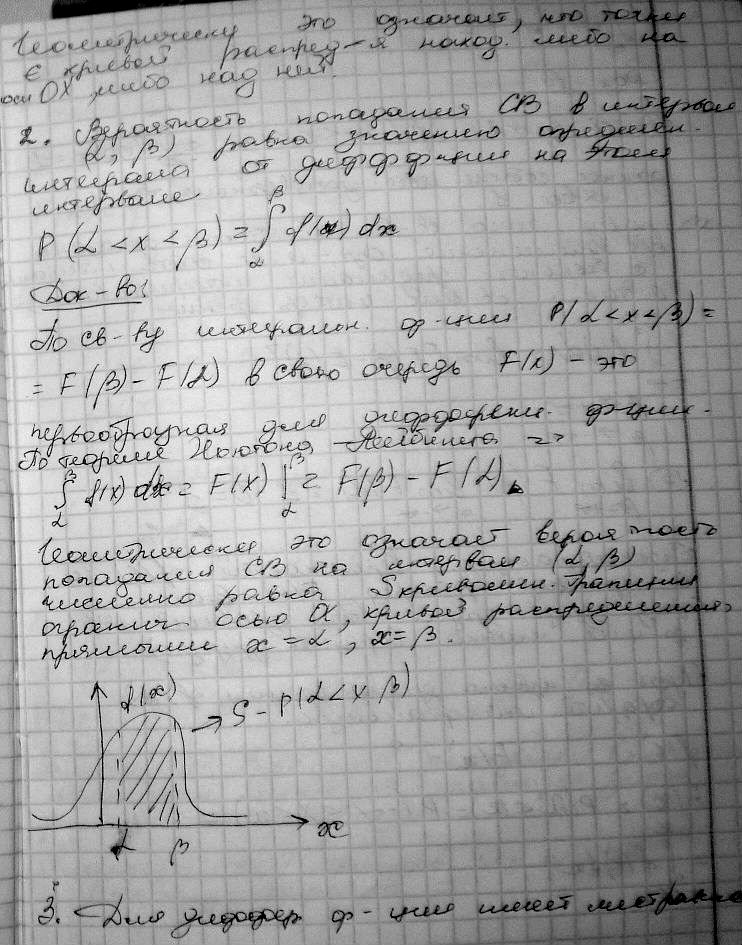 Геометрически это означает, что точки
Є кривой распред-я наход. либо на
оси ОХ, либо над ней.
2. Вероятность попадания СВ в интервал
(α, β) равна значению определен.
интеграла от дифф функции на этом
интервале
P(α < x < β) = ∫αβ f(x) dx
Док-во:
По св-ву интегральн. ф-ции P(α < x < β) =
= F(β) - F(α) в свою очередь F(x) - это
первообразная для дифференц. ф-ции.
По теореме Ньютона-Лейбница =>
∫αβ f(x) dx = F(x) |αβ = F(β) - F(α)
Геометрически это означает вероятность
попадания СВ на интервал (α, β)
численно равна S криволин. трапеции
огранич. осью ОХ, кривой распределения,
прямыми x = α, x = β.
f(x)
→ S - P(α < x β)
α β x
3. Для диффер ф-ции имеет место равно